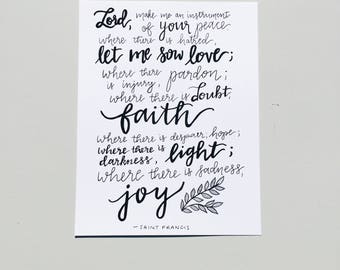 Lord, make me an instrument
of your peace
where there is hatred,
let me sow love;
where there
is injury, pardon;
where there is doubt,
faith
where there is despair, hope;
where there is
darkness, light;
where there is sadness,
joy
- SAINT FRANCIS